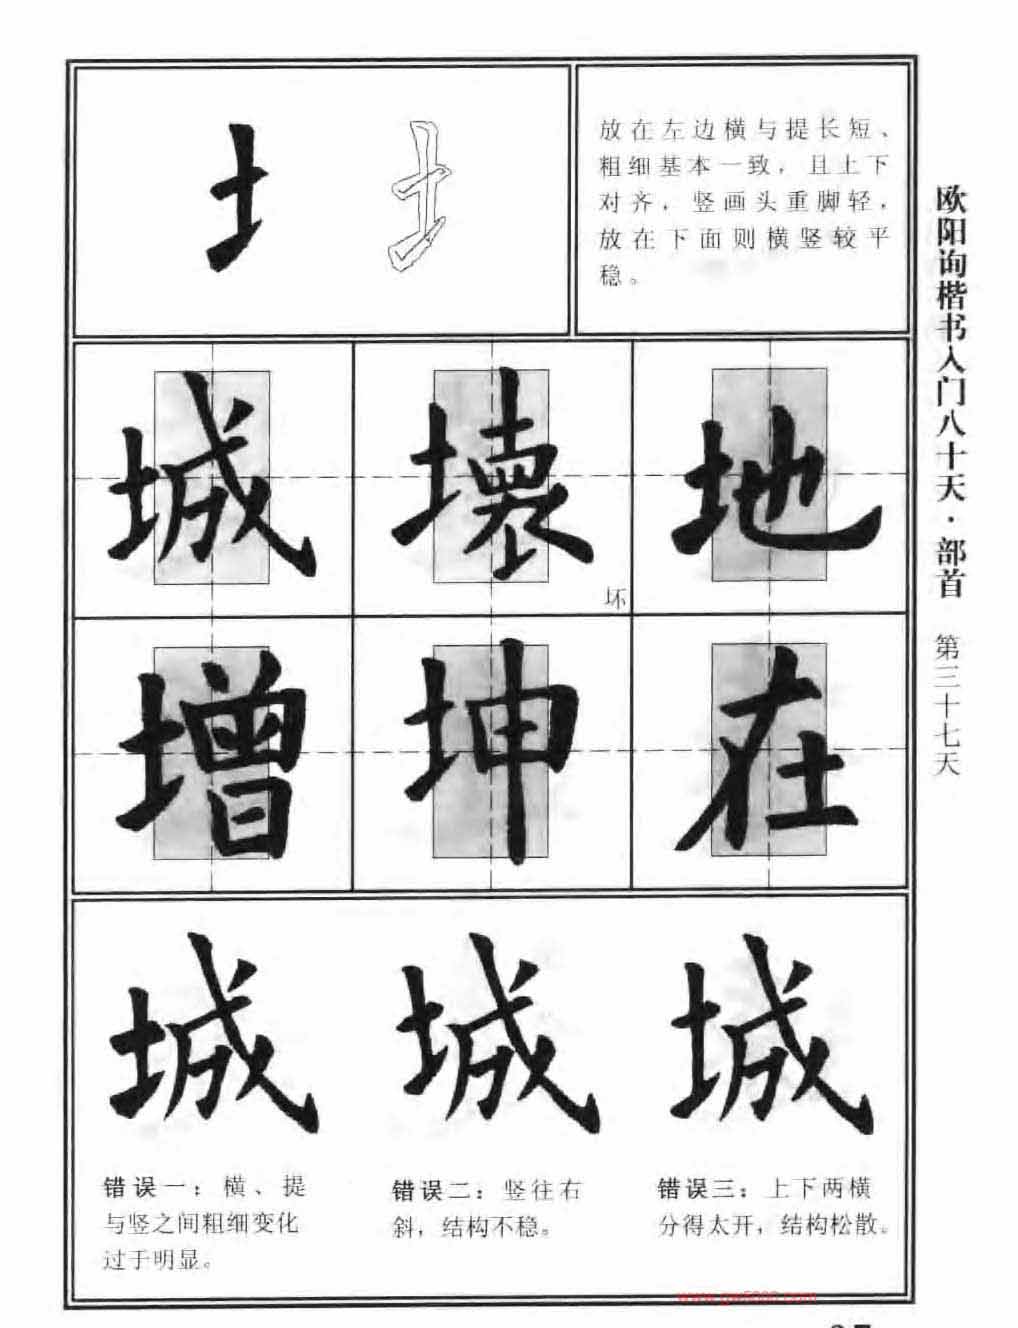 土
放在左边横与提长短、
粗细基本一致，且上下
对齐，竖画头重脚轻，
放在下面则横竖较平
稳。
城 壞 地
坏
增 坤 在
城 城 城
错误一：横、提
与竖之间粗细变化
过于明显。
错误二：竖往右
斜，结构不稳。
错误三：上下两横
分得太开，结构松散。
欧阳询楷书入门八十天·部首 第三十七天